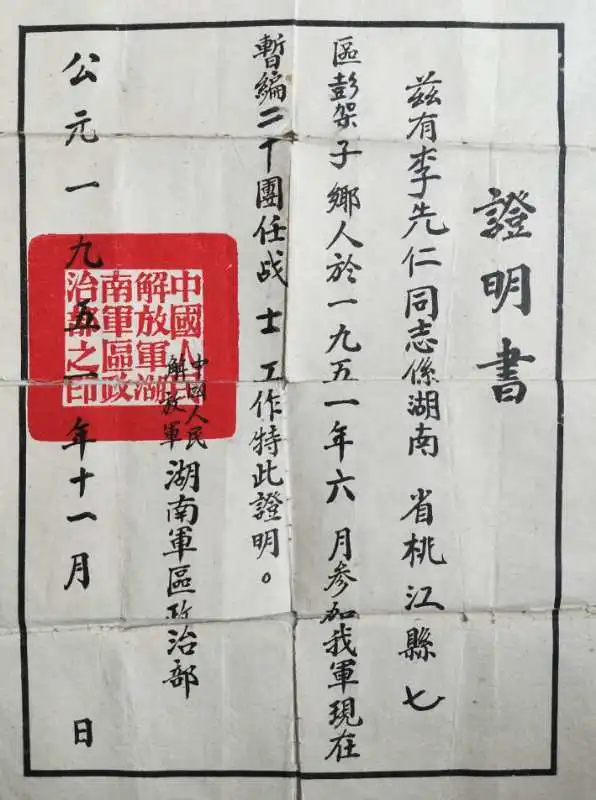 證明書
茲有李先仁同志係湖南 省桃江縣七
區彭架子鄉人於一九五一年六月参加我軍現在
暫編二十團任战士工作特此證明。
中國人民
解放軍
湖南軍區政治部
公元一九五一年十一月 日
中國人民
解放軍湖
南軍區政
治部之印